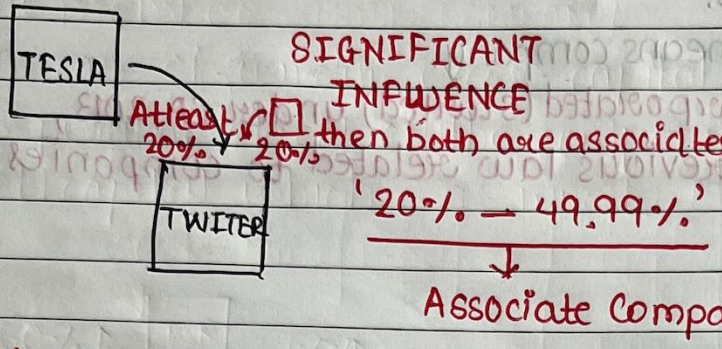 TESLA
SIGNIFICANT
INFLUENCE
Atleast
20%
20%
then both are associate
TWITER
'20% - 49.99%'
Associate Compa